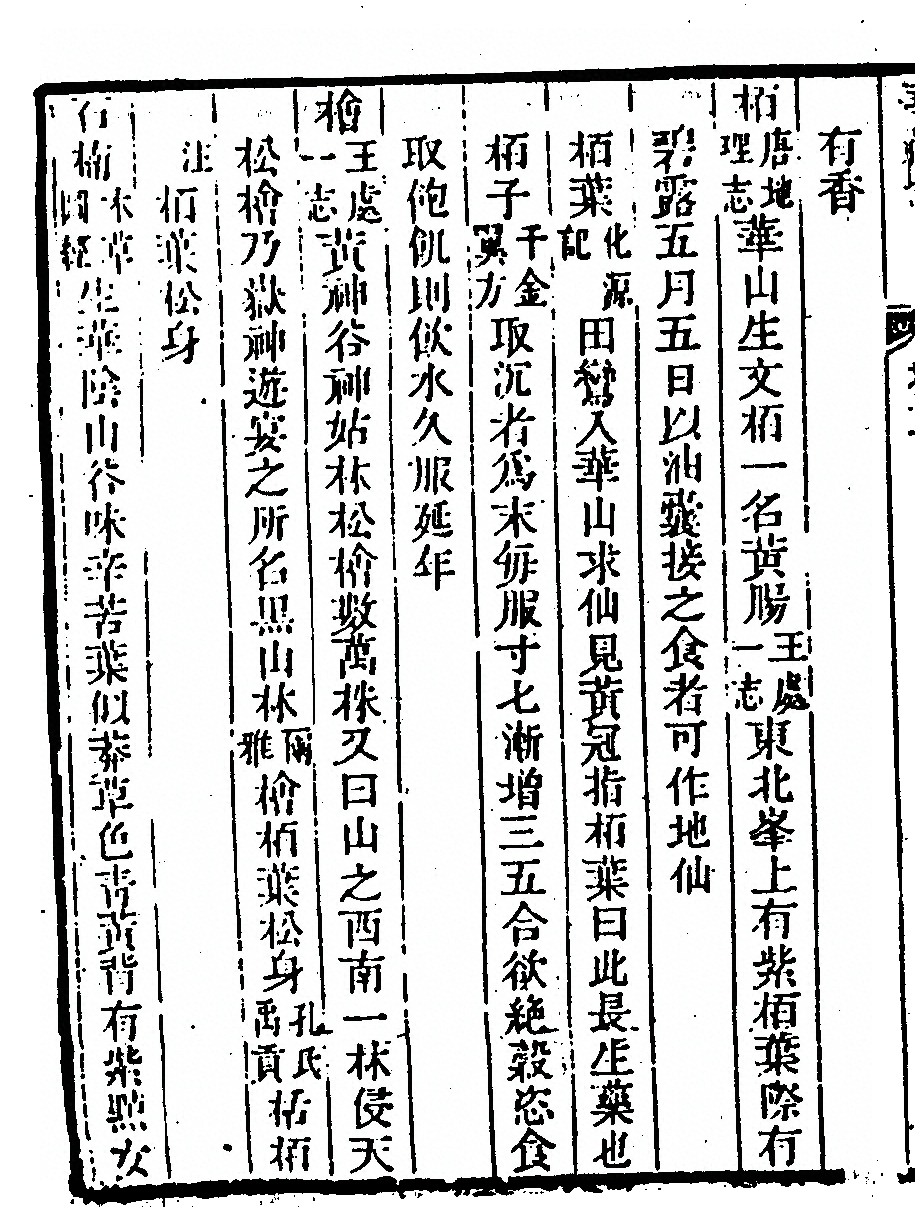 有香
栢唐地理志華山生文栢一名黃腸王處一志東北峯上有紫栢葉際有
碧露五月五日以油囊接之食者可作地仙
栢葉化源記田鸞入華山求仙見黃冠指栢葉曰此長生藥也
栢子千金翼方取沉者爲末每服寸七漸增三五合欲絶穀恣食
取飽飢則飲水久服延年
檜王處一志黃神谷神姑林松檜數萬株又曰山之西南一林侵天
松檜乃嶽神遊宴之所名黑山林爾雅檜栢葉松身孔氏禹貢栝栢
注栢葉松身
石楠本草圖經生華陰山谷味辛苦葉似莽草色青黃背有紫點女